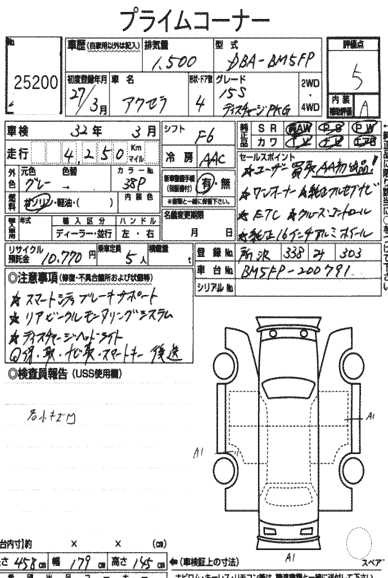 プライムコーナー
25200
車歴 (自家用以外は記入) 排気量 1,500 型式 DBA-BM5FP 評価点 5
初度登録年月 27/3月 車名 アクセラ 形状・ドア数 4 グレード 15S ディスチャージPKG 2WD・4WD 内装補助評価 A
車検 32年 3月 シフト F6 純正品 SR 純AW PS PW
走行 4,250 Km マイル 冷房 AAC カワ
外色 元色 グレー 色替 カラーNo. 38P 新車整備手帳(保証書付) 有・無
セールスポイント
★ユーザー買取AA初出品!
★ワンオーナー★純正フルセグナビ
★ETC★クルーズコントロール
★純正16インチアルミホイール
燃料 ガソリン・軽油・( ) 名義変更期限 月 日
輸入車 年式 輸入区分 ディーラー・並行 ハンドル 左・右
リサイクル預託金 10,770円 乗車定員 5人 積載量 t
登録No. 所沢 338 そ 303
車台No. BM5FP-200791
シリアルNo.
◎注意事項 (修復・不具合箇所および状態等)
★スマートシティブレーキサポート
★リアビークルモニタリングシステム
★ディスチャージヘッドライト
◎保・取・ナビ取・スマートキー 後送
◎検査員報告 (USS使用欄)
A1
A1
A1
スペア
荷台内寸(約 × × (cm)
長さ 458cm 幅 179cm 高さ 145cm ←(車検証上の寸法)